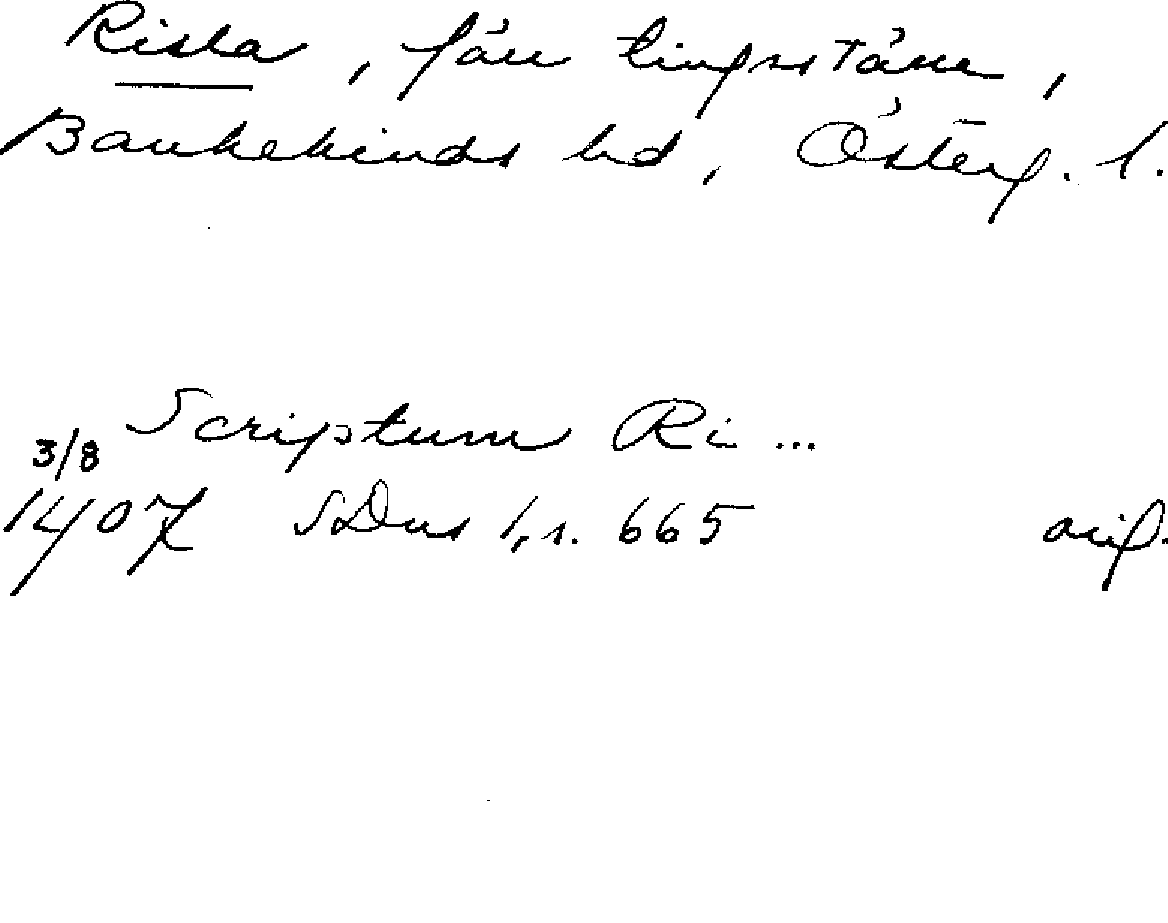 Risla, fån tingsstäm,
Bankekinds hd, Österg. l.
Scriptum Ri ...
3/8
1407 SDns 1, s. 665 orig.